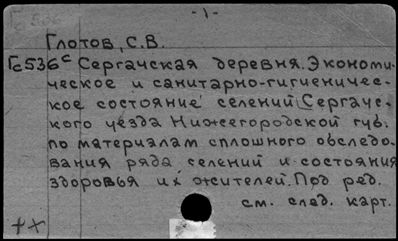 - 1 -
Глотов, С.В.
Гс536с Сергачская деревня. Экономи-
ческое и санитарно-гигиеничес-
кое состояние селений Сергачс-
кого уезда Нижегородской губ.
по материалам сплошного обследо-
вания ряда селений и состояния
здоровья их жителей. Под ред.
см. след. карт.
++